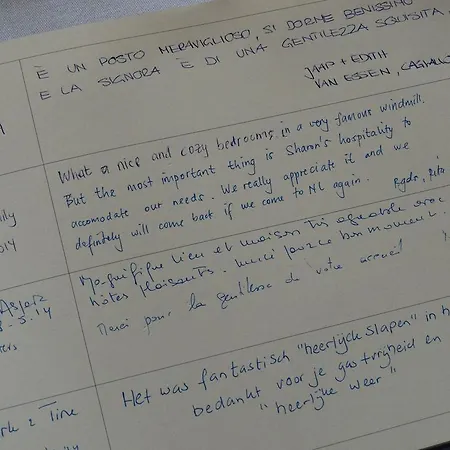 È UN POSTO MERAVIGLIOSO, SI DORME BENISSIMO
E LA SIGNORA È DI UNA GENTILEZZA SQUISITA
JAAP + EDITH
VAN ESSEN,
What a nice and cozy bedrooms in a very famous windmill.
But the most important thing is Sharon's hospitality to
accomodate our needs. We really appreciate it and we
definitely will come back if we come to NL again. Rgds,
ily
014
Magnifique lieu et maison très agréable avec
hôtes plaisants. Merci pour ce bon moment.
Merci pour la gentillesse de votre accueil
5.14
Het was fantastisch "heerlijck slapen" in h
bedankt voor je gastvrijheid en
"heerlijke weer"
Tine